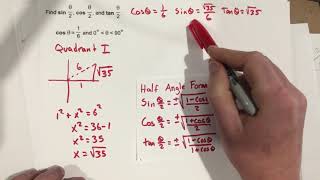 Find sin θ/2, cos θ/2, and tan θ/2
cos θ = 1/6 and 0° < θ < 90°
Cosθ = 1/6 Sinθ = √35/6 Tanθ = √35
Quadrant I
6
√35
1
1² + x² = 6²
x² = 36-1
x² = 35
x = √35
Half Angle Form
Sin θ/2 = ±√(1-cosθ/2)
Cos θ/2 = ±√(1+cosθ/2)
tan θ/2 = ±√(1-cosθ/1+cosθ)